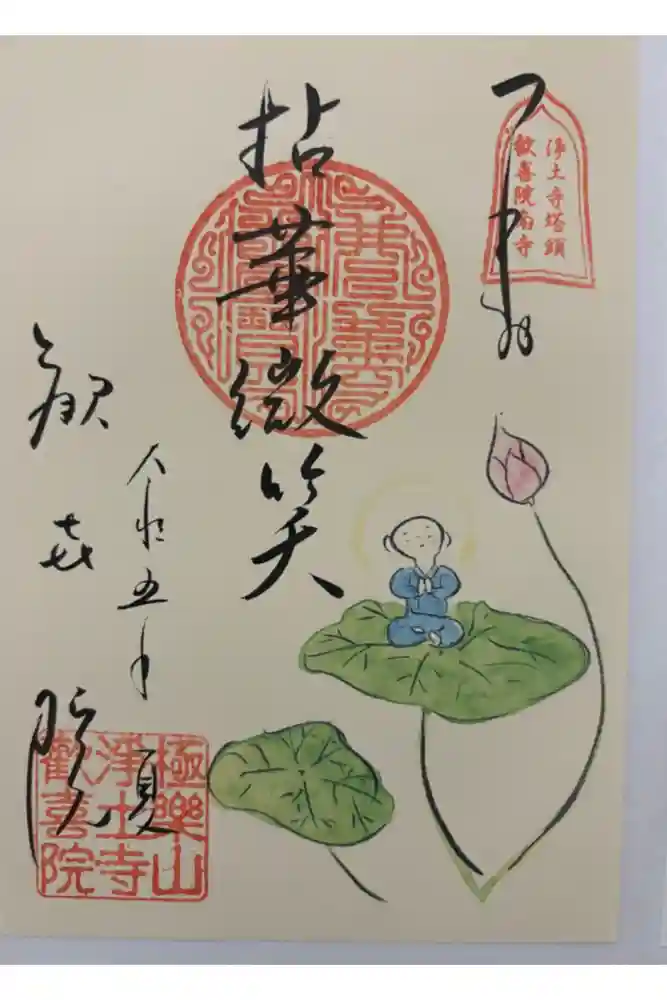 浄土寺塔頭
歓喜院南寺
拈華微笑
令和五年 夏
歓㐂院
極樂山
淨土寺
歡喜院